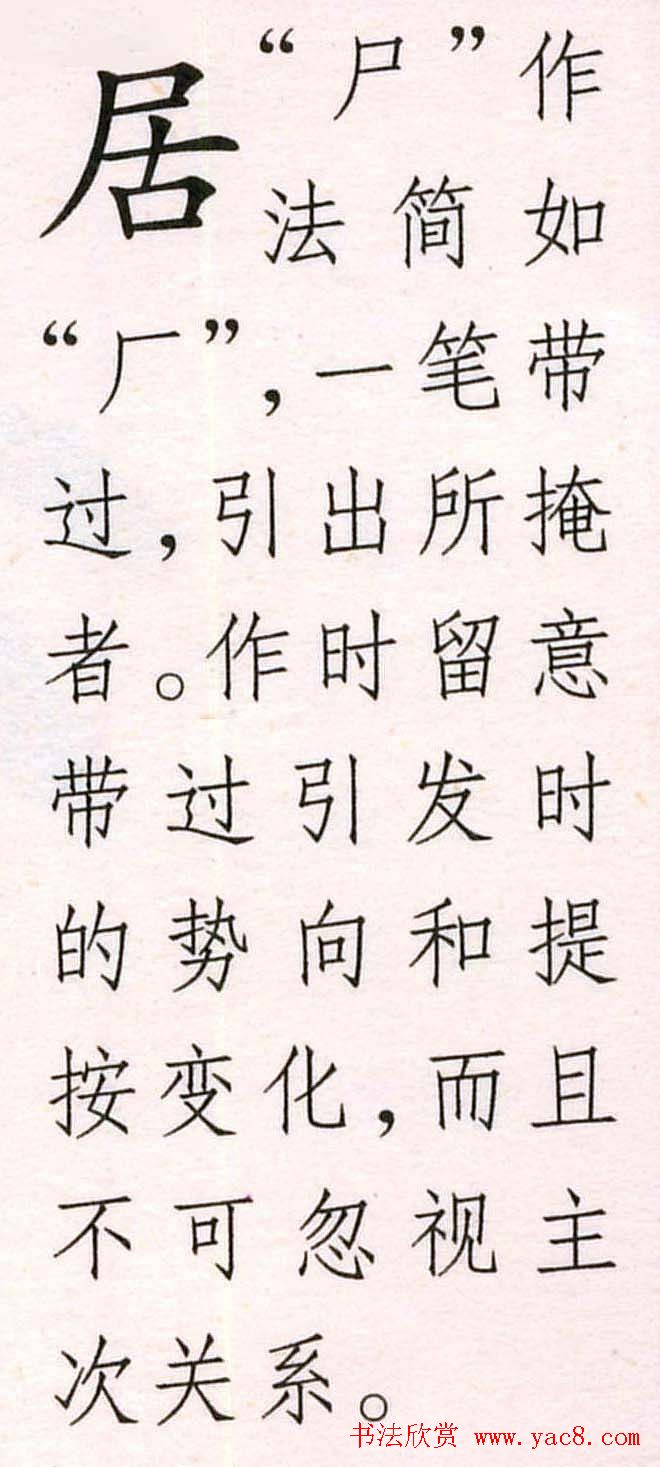 居
“尸”作
法简如
“厂”,一笔带
过,引出所掩
者。作时留意
带过引发时
的势向和提
按变化,而且
不可忽视主
次关系。
书法欣赏 www.yac8.com